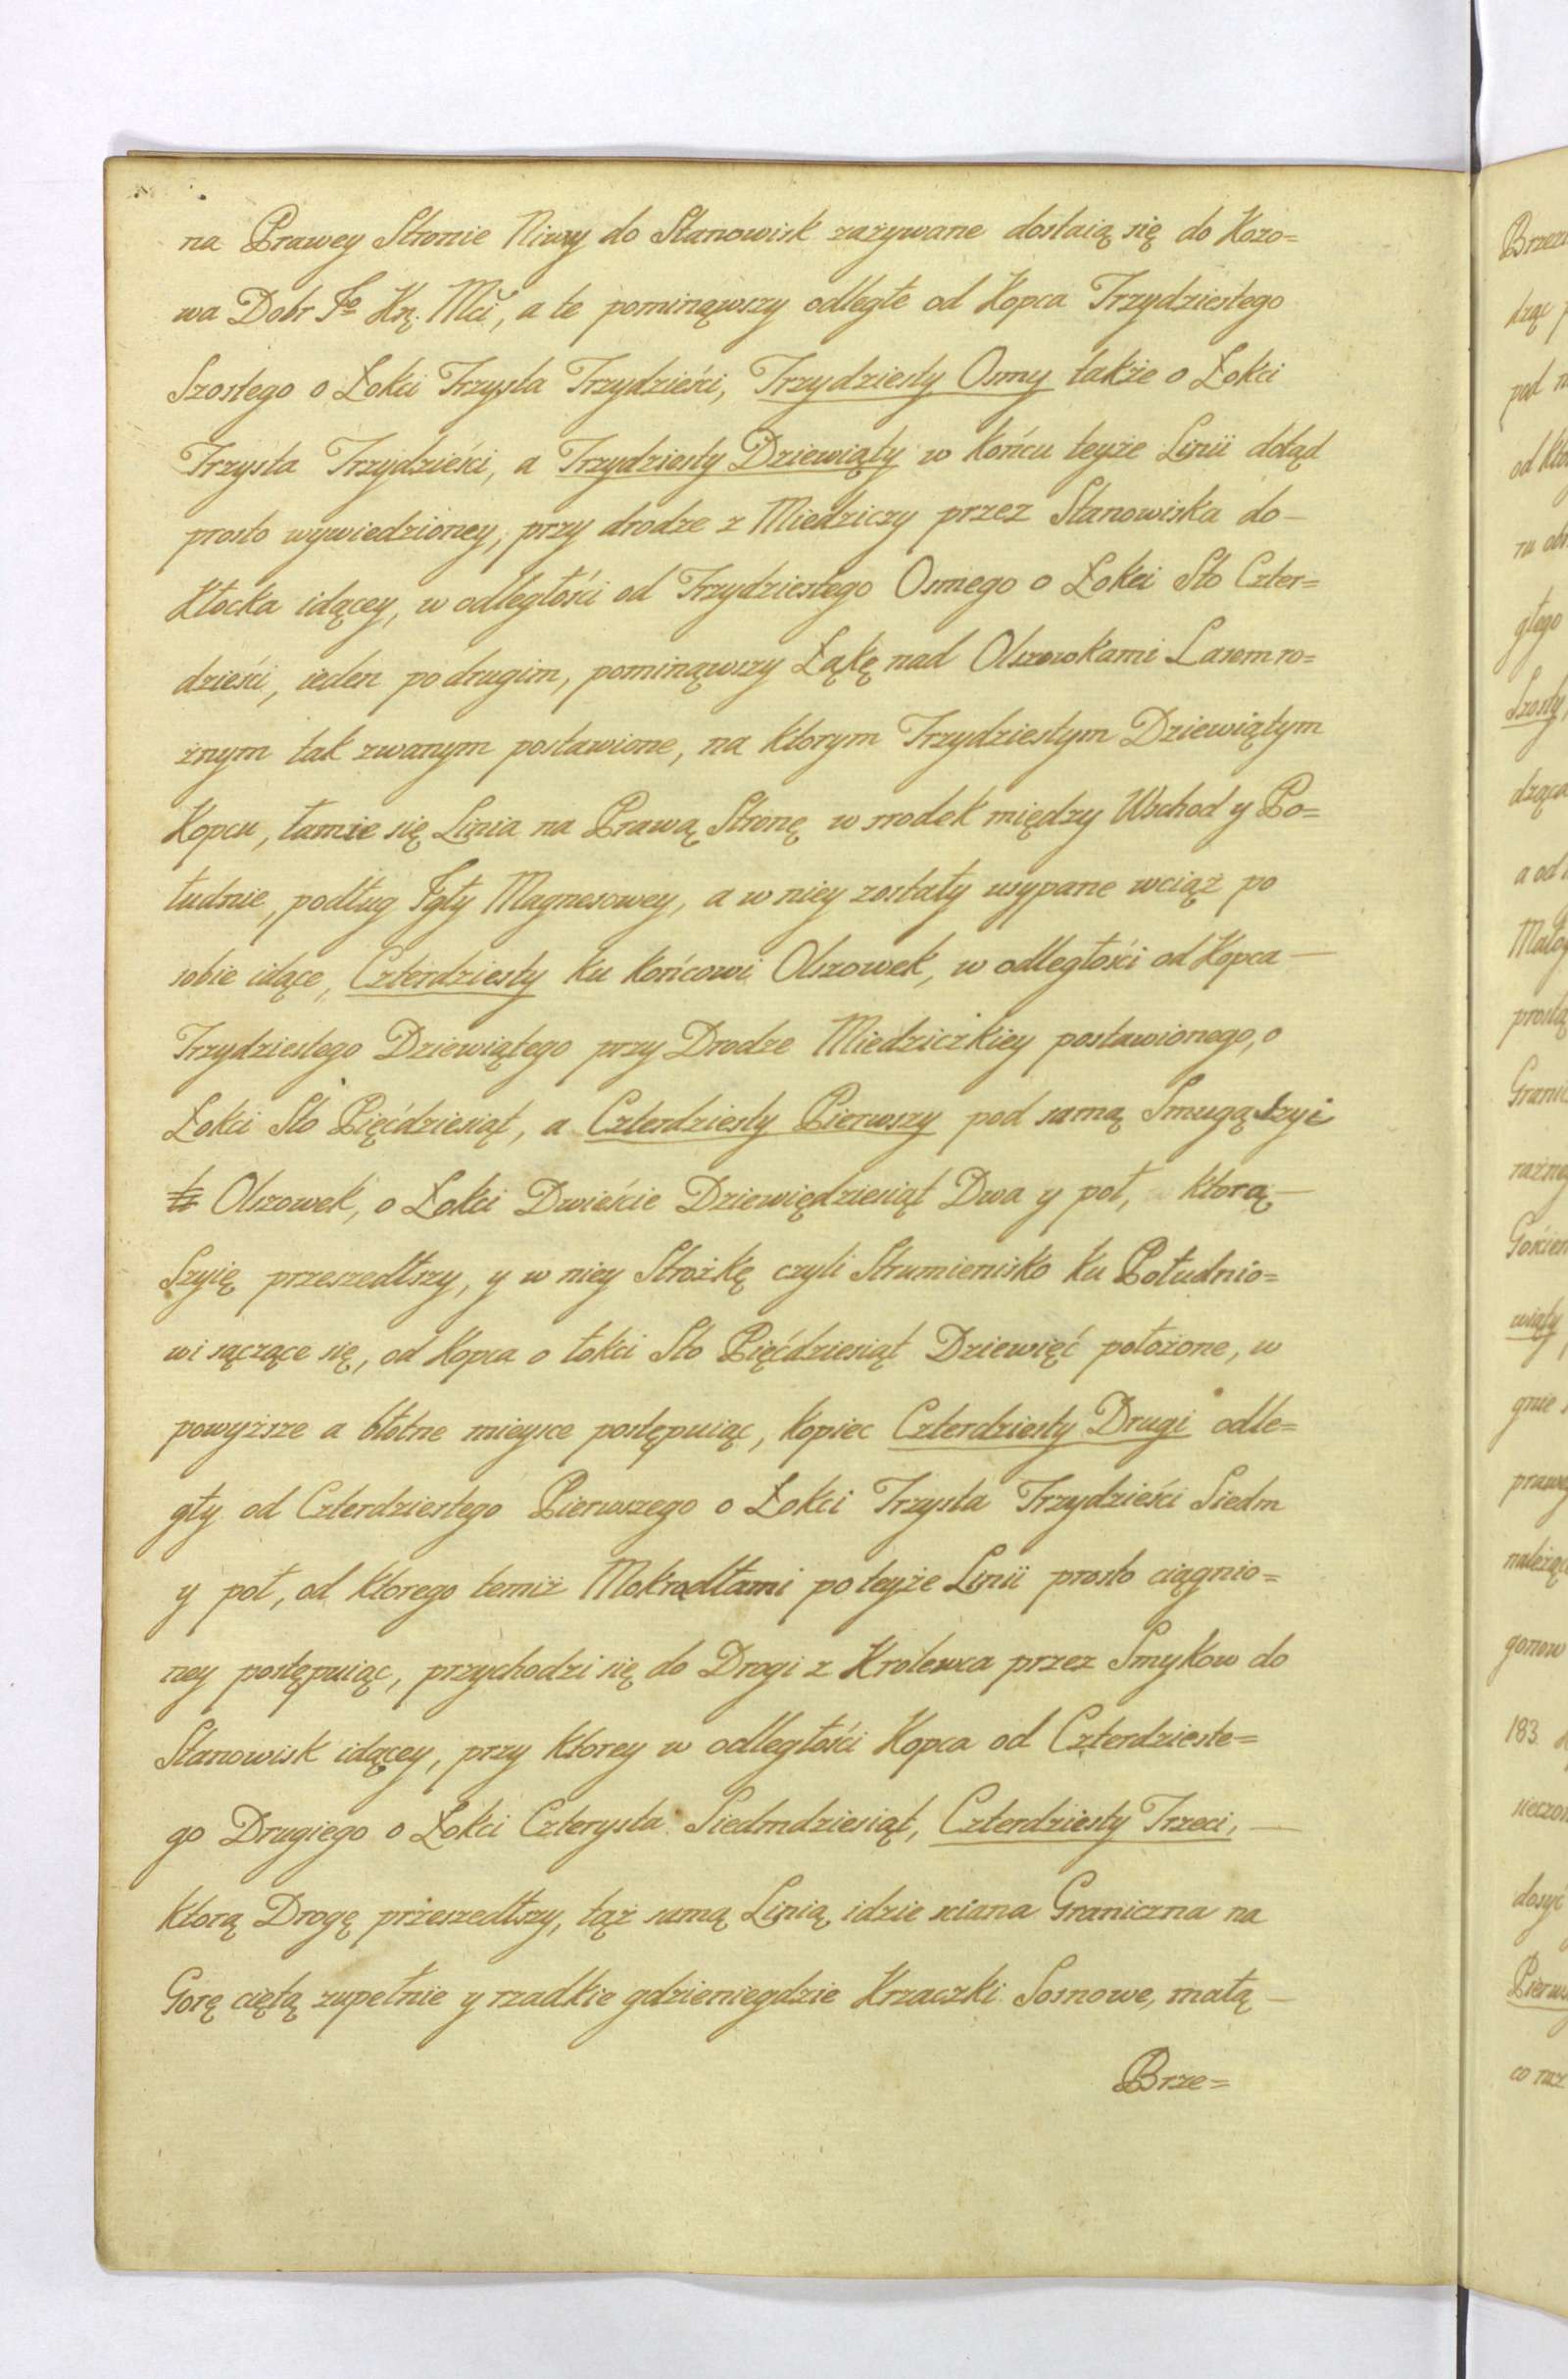 na Prawey Stronie Niwy do Stanowisk zażywane dostaią się do Kozo=
wa Dobr Jº Kṣ. Mći, a te pominąwszy odległe od Kopca Trzydziestego
Szostego o Łokci Trzysta Trzydzieści, Trzydziesty Osmy także o Łokci
Trzysta Trzydzieści, a Trzydziesty Dziewiąty w końcu teyże Linii dotąd
prosto wywiedzioney, przy drodze z Miedziczy przez Stanowiska do-
Kłocka idącey, w odległości od Trzydziestego Osmego o Łokci Sto Czter=
dzieści, ieden po drugim, pominąwszy Łąkę nad Olszowkami Lasem ro=
żnym tak zwanym postawione, na ktorym Trzydziestym Dziewiątym
Kopcu, łamie się Linia na Prawą Stronę w srodek między Wschod y Po=
łudnie, podług Jgły Magnesowey, a w niey zostały usypane wciąż po
sobie idące, Czterdziesty ku końcowi Olszowek, w odległości od Kopca —
Trzydziestego Dziewiątego przy Drodze Miedziczkiey postawionego, o
Łokci Sto Pięćdziesiąt, a Czterdziesty Pierwszy pod samą Smugą szyi
Olszowek, o Łokci Dwieście Dziewiędziesiąt Dwa y poł, ktorą —
Szyię przeszedłszy, y w niey Strożkę czyli Strumienisko ku Południo=
wi sączące się, od Kopca o łokci Sto Pięćdziesiąt Dziewięć położone, w
powyższe a błotne mieysce postępuiąc, kopiec Czterdziesty Drugi odle=
gły od Czterdziestego Pierwszego o Łokci Trzysta Trzydzieści Siedm
y poł, od ktorego temiż Mokradłami po teyże Linii prosto ciągnio=
ney postępuiąc, przychodzi się do Drogi z Krolewca przez Smykow do
Stanowisk idącey, przy ktorey w odległości Kopca od Czterdzieste=
go Drugiego o Łokci Czterysta Siedmdziesiąt, Czterdziesty Trzeci, —
ktorą Drogę przeszedłszy, tąż samą Linią idzie sciana Graniczna na
Gorę ciętą zupełnie y rzadkie gdzieniegdzie Krzaczki Sosnowe, małą —
Brze=